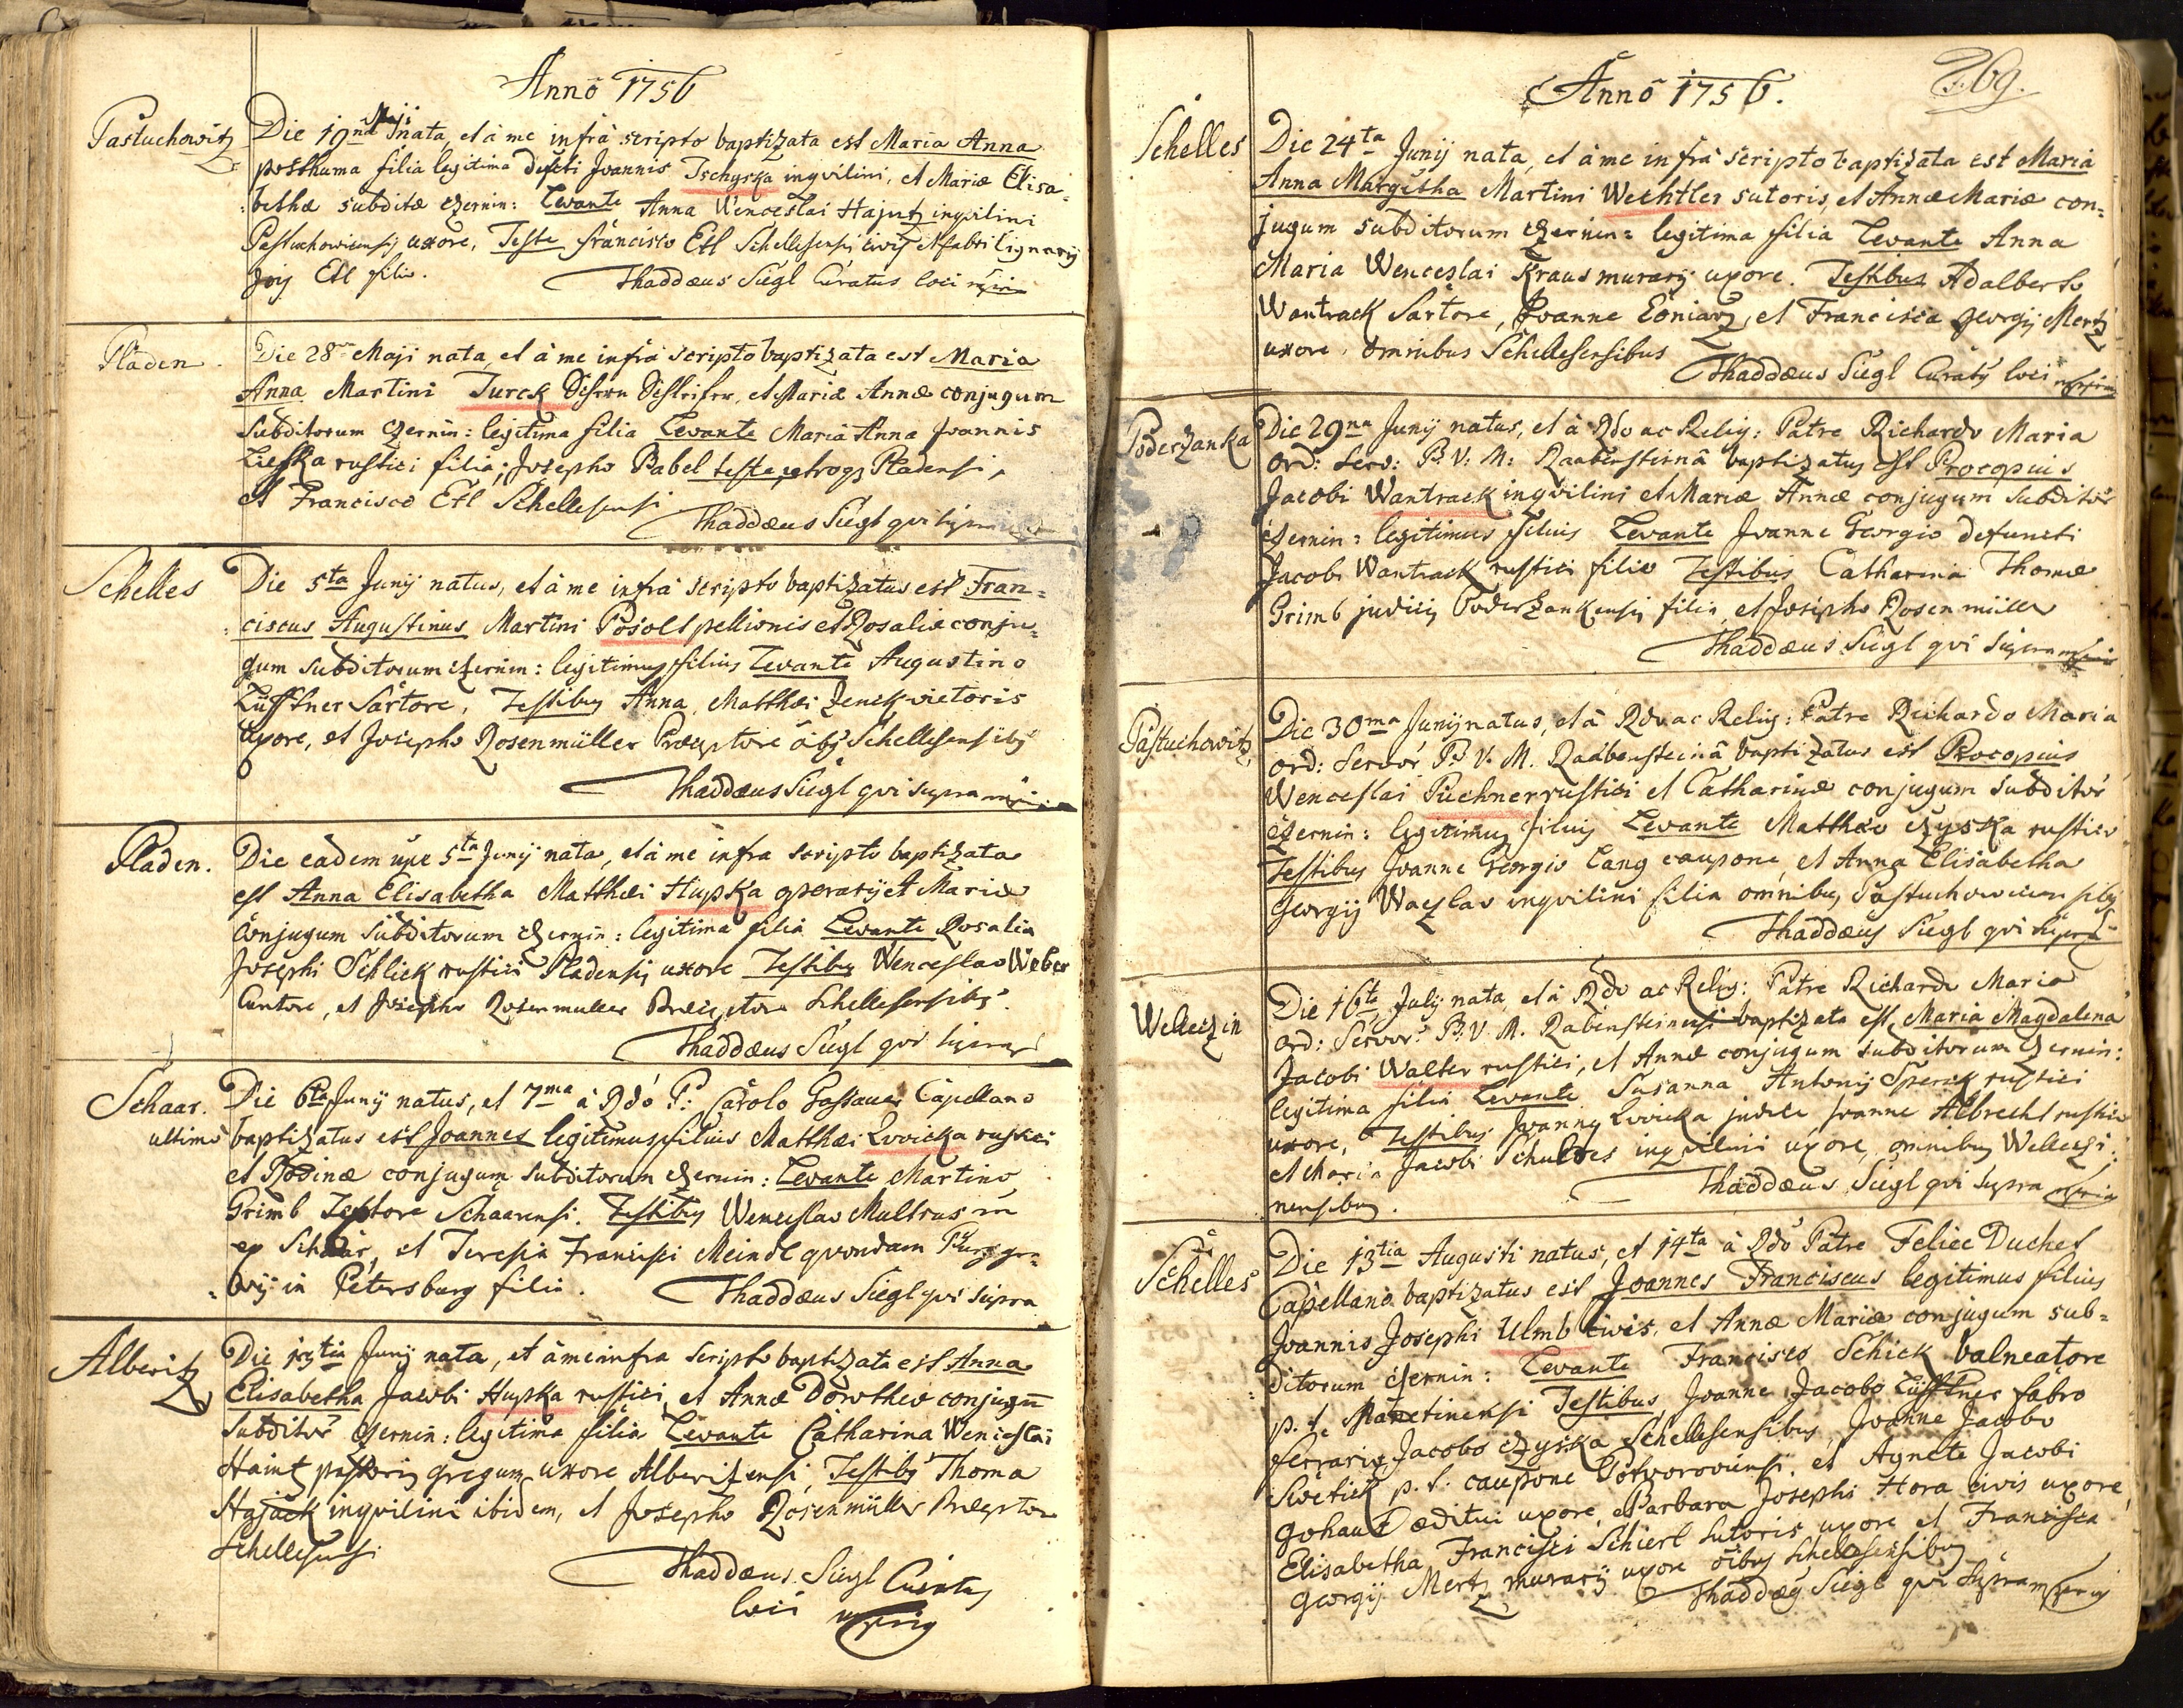 Anno 1756
Pastuchowitz
Die 19na Maji nata, et à me infrà scripto baptizata est Maria Anna
posthuma filia legitima defcti Joannis Tschyska inqvilini, et Mariæ Elisa=
bethæ subditæ czernin: Levante Anna Wenceslai Hajutz inqvilini
Pastuchowicensis uxore, Teste Francisco Etl Schellesensi civis et fabri lignarij
Etl filio.
Thaddæus Siegl Curatus loci mpria
Pladen
Die 28va Maji nata, et à me infrà scripto baptizata est Maria
Anna Martini Turck et Mariæ Annæ conjugum
Subditorum czernin: legitima filia Levante Maria Anna Joannis
Lieska rustici filia; Josepho Babel teste, utroqz Pladensi,
et Francisco Etl Schellesensi
Thaddæus Siegl qvi supra
Schelles
Die 5ta Junij natus, et à me infrà scripto baptizatus est Fran=
ciscus Augustinus Martini Posolt pellionis et Rosaliæ conju=
gum subditorum czernin: legitimus filius Levante Augustino
Lüfftner Sartore, Testibus Anna, Matthæi Zenck vietoris
uxore, et Josepho Rosenmüller Præceptore oibs Schellesensibs
Thaddæus Siegl qvi supra mpria
Pladen.
Die eadem 5ta Junij nata, et à me infra scripto baptizata
est Anna Elisabetha Matthæi Hupka operarij et Mariæ
Conjugum Subditorum czernin: legitima filia Levante Rosalia
Josephi Schlick rustici Pladensis uxore Testibus Wenceslao Weber
Cantore, et Josepho Rosenmuller Præceptore Schellesensibs.
Thaddæus Siegl qvi supra
Schaar.
ultimo
Die 6ta Junij natus, et 7ma à Rdo P: Carolo Gassauer Capellano
baptizatus est Joannes legitimus filius Matthæi Lvvicka rustici
et Rosinæ conjugum subditorum czernin: Levante Martino
Grimb Textore Schaarensi. Testibus Wenceslao Multrus
ex Schaar, et Teresia Francisci Meindl qvondam Purggra=
vij in Petersburg filia.
Thaddæus Siegl qvi supra
Alberitz
Die 13tia Junij nata, et à me infra scripto baptizata est Anna
Elisabetha Jacobi Hupka rustici, et Annæ Dorotheæ conjugū
Subditor czernin: legitima filia Levante Catharina Wenceslai
Haintz pastoris gregum uxore Alberitzensi, Testibs Thoma
Hajack inqvilini ibidem, et Josepho Rosenmüller Præceptore
Schellesensi
Thaddæus Siegl Curatus
loci mpria
Anno 1756.
269.
Schelles
Die 24ta Junij nata, et à me infrà scripto baptizata est Maria
Anna Margetha Martini Wechtler sutoris, et Annæ Mariæ con=
jugum subditorum czernin: legitima filia Levante Anna
Maria Wenceslai Kraus murarij uxore. Testibus Adalberto
Wantrack Sartore, Joanne Eoniarz, et Francisca Georgij Mertz
uxore, omnibus Schellesensibus
Thaddæus Siegl Curats loci mpria
Poderzanka
Die 29na Junij natus, et à Rdo ac Relig: Patre Richardo Maria
Ord: Serv: B: V: M: Raabensteinâ baptizatus est Procopius
Jacobi Wantrack inqvilini et Mariæ Annæ conjugum subditor
czernin: legitimus filius Levante Joanne Georgio defuncti
Jacobi Wantrack rustici filio Testibus Catharina Thomæ
Grimb judicis Poderzankensis filia, et Josepho Rosenmüller
Thaddæus Siegl qvi supra mpria
Pastuchowitz
Die 30ma Junij natus, et à Rdo ac Relig: Patre Richardo Maria
Ord: Servor B: V. M. Raabensteinâ baptizatus est Procopius
Wenceslai Püchner rustici et Catharinæ conjugum subditor
czernin: legitimus filius Levante Matthæo czyska rustico
Testibus Joanne Georgio Lang caupone, et Anna Elisabetha
Georgij Waczlav inqvilini filia omnibus Pastuchowicensibs
Thaddæus Siegl qvi supra
Welleczin
Die 16ta July nata, et à Rdo ac Relig: Patre Richardo Maria
Ord: Servor: B. V. M. Rabensteinensi baptizata est, Maria Magdalena
Jacobi Walter rustici, et Annæ conjugum subditorum czernin:
legitima filia Levante Susanna Antonij Sperck rustici
uxore, Testibus Joanne Lvvicka judice Joanne Albrecht rustico
et Maria Jacobi Schultes inqvilini uxore, omnibus Welleczi=
nensibus.
Thaddæus Siegl qvi supra mpria
Schelles
Die 13tia Augusti natus, et 14ta à Rdo Patre Felice Duchet
Capellano baptizatus est Joannes Franciscus legitimus filius
Joannis Josephi Ulmb civis, et Annæ Mariæ conjugum sub=
ditorum czernin: Levante Francisco Schick balneatore
p. t. Manetinensi Testibus Joanne Jacobo Lüfftner fabro
ferrario, Jacobo czyska Schellesensibus, Joanne Jacobo
Swetick p. t. caupone Potvoroviensi, et Agnete Jacobi
Gohaut æditui uxore, Barbara Josephi Hora civis uxore,
Elisabetha Francisci Schierl sutoris uxore et Francisca
Georgij Mertz murarij uxore oibus Schellesensibus
Thaddæus Siegl qvi supra mpria